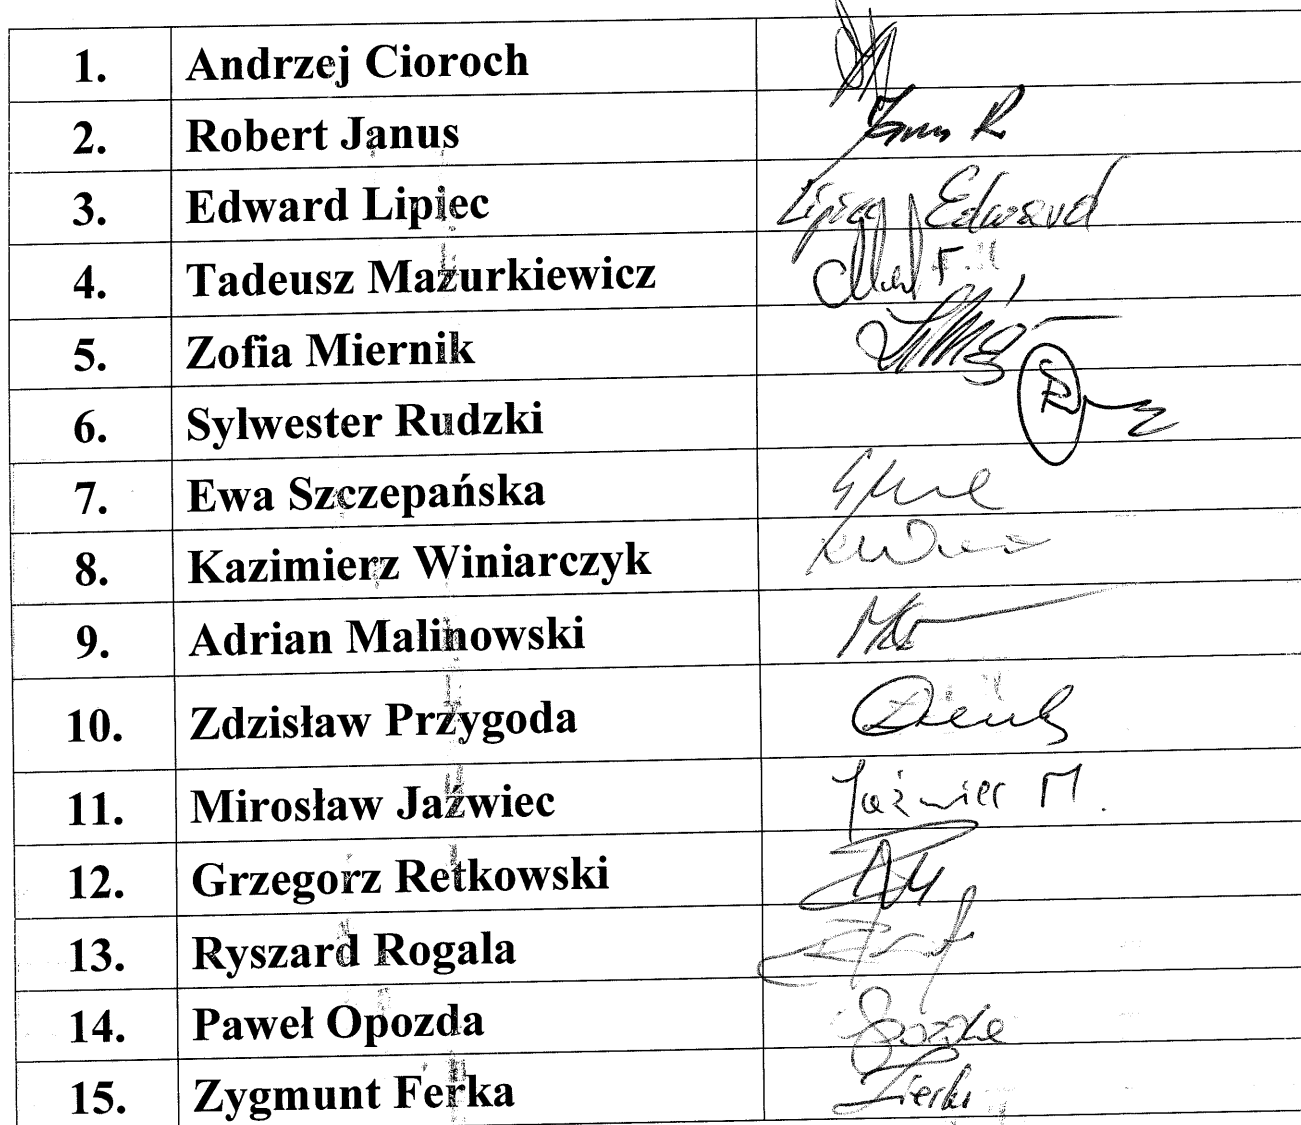 1. Andrzej Cioroch
2. Robert Janus Janus R
3. Edward Lipiec Lipiec Edward
4. Tadeusz Mazurkiewicz
5. Zofia Miernik
6. Sylwester Rudzki
7. Ewa Szczepańska
8. Kazimierz Winiarczyk
9. Adrian Malinowski
10. Zdzisław Przygoda
11. Mirosław Jaźwiec Jaźwiec M.
12. Grzegorz Retkowski
13. Ryszard Rogala
14. Paweł Opozda
15. Zygmunt Ferka